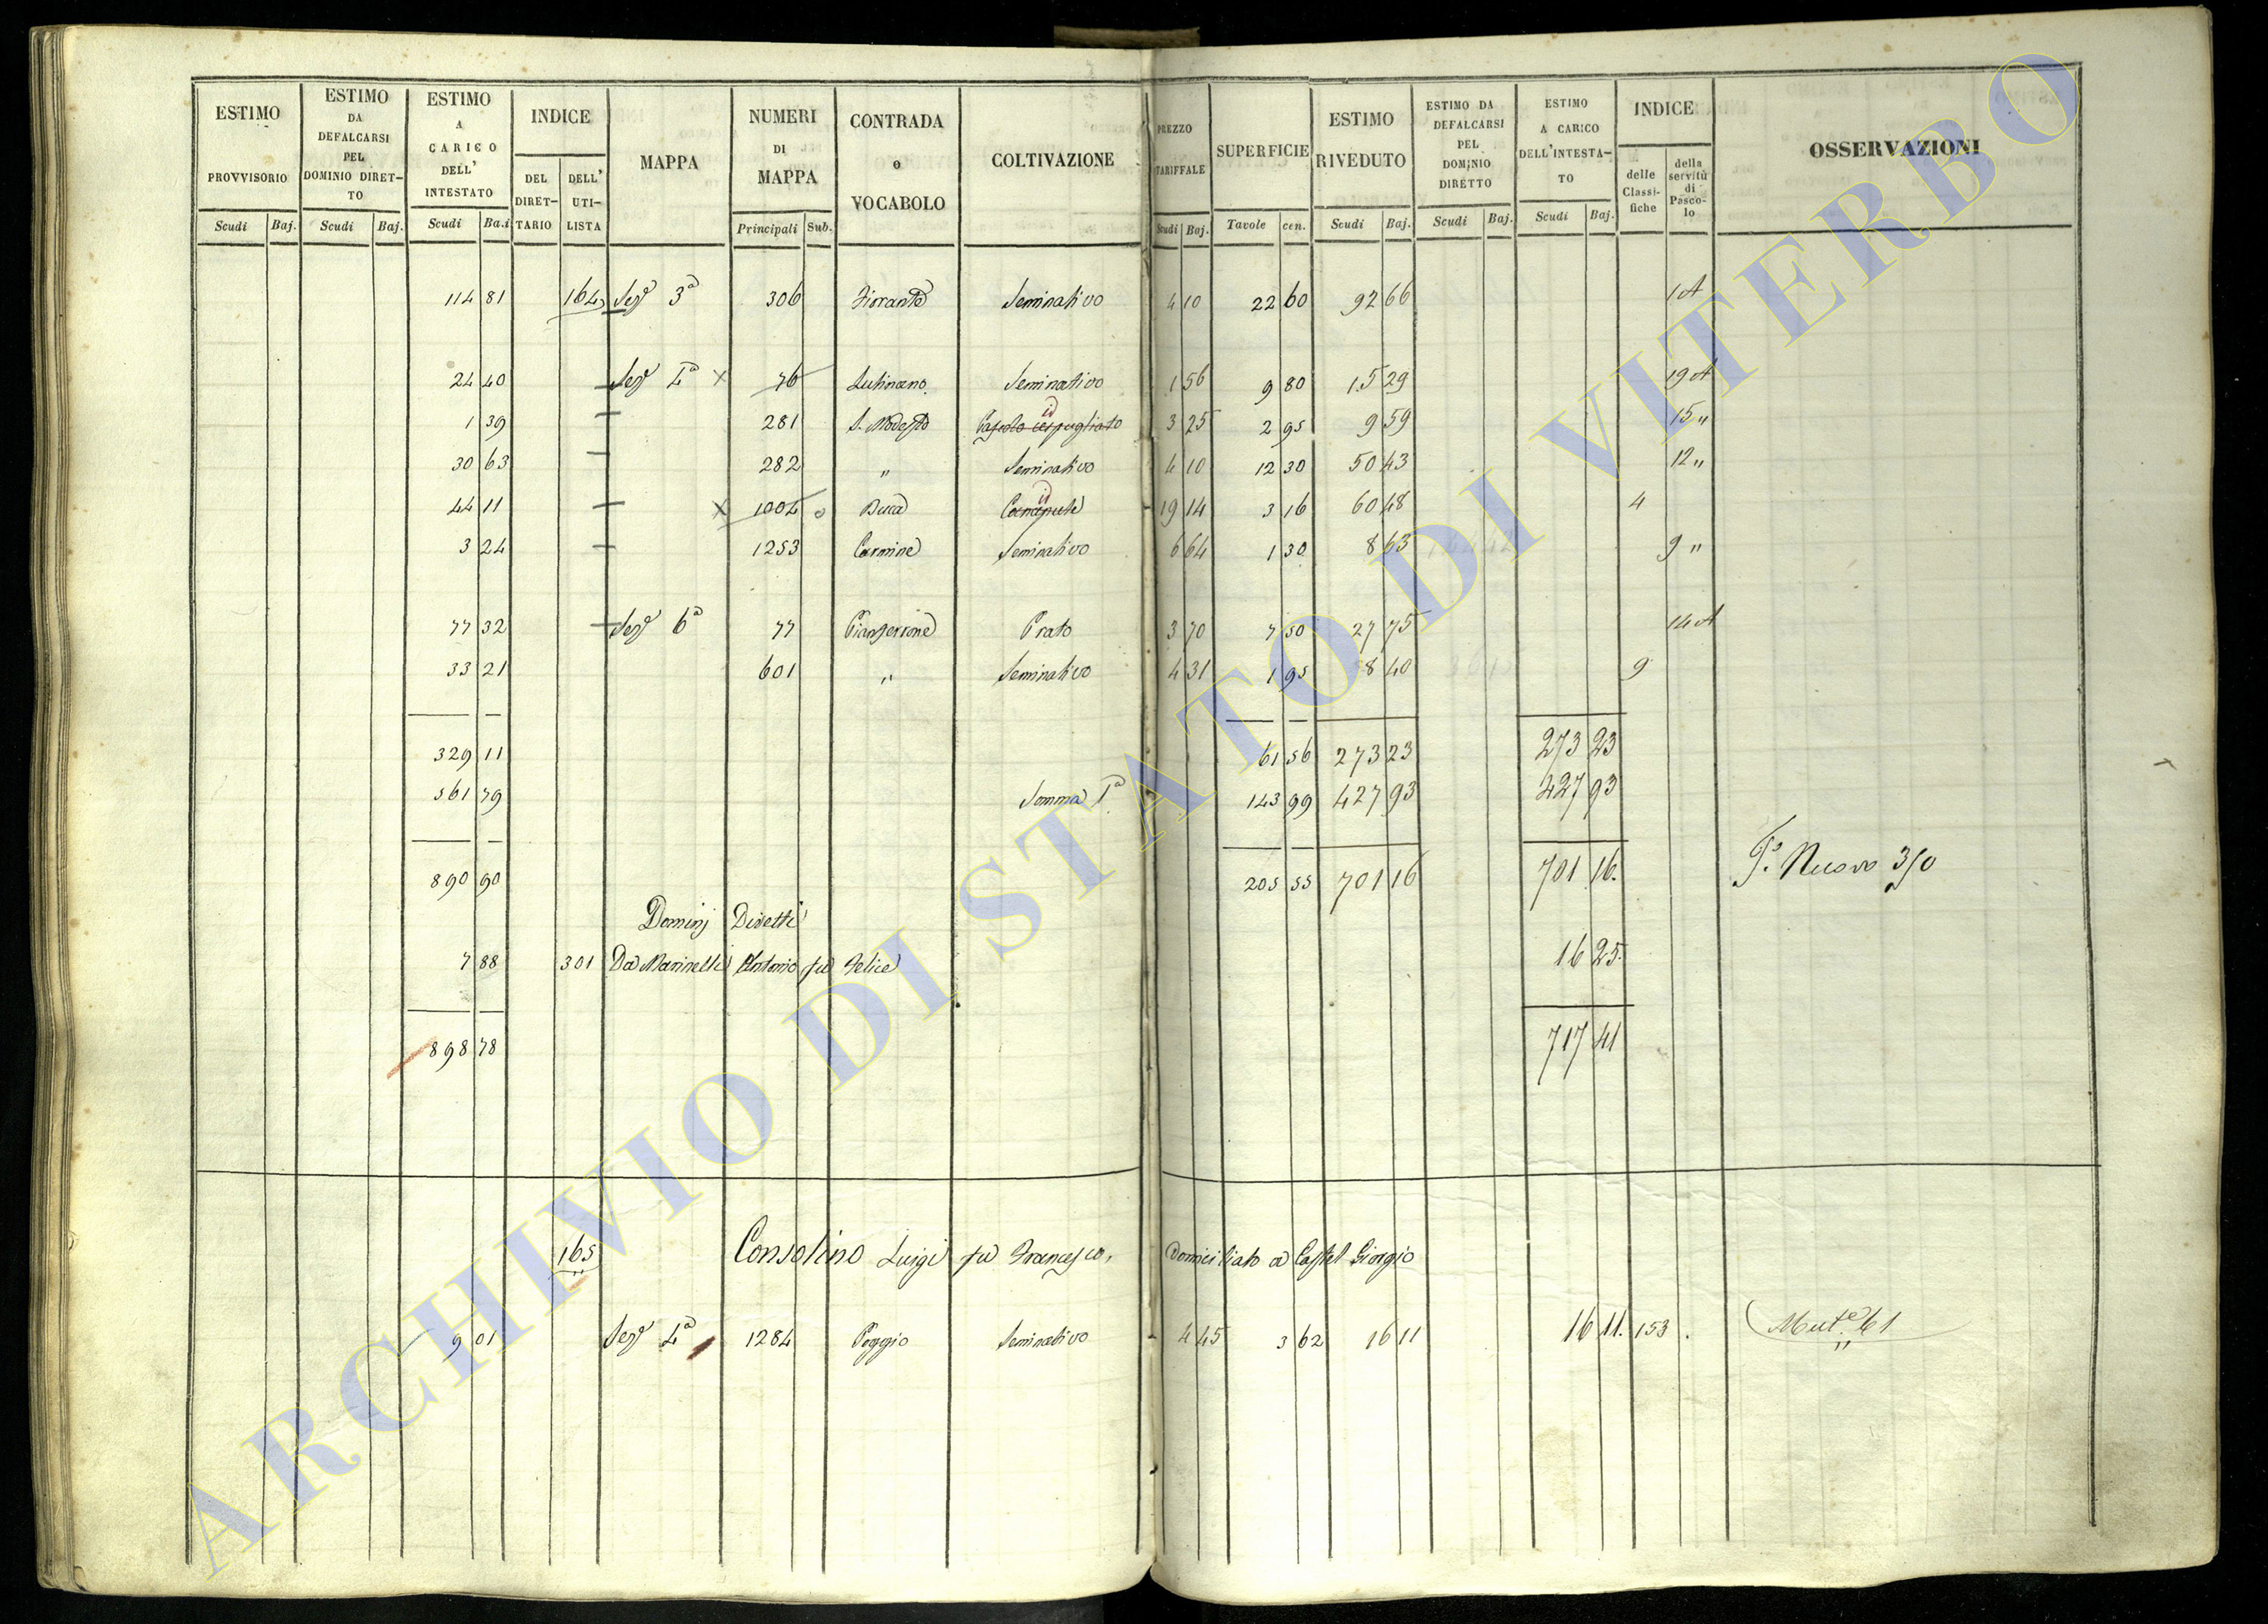 ESTIMO PROVVISORIO
Scudi Baj.
ESTIMO DA DEFALCARSI PEL DOMINIO DIRETTO
Scudi Baj.
ESTIMO A CARICO DELL' INTESTATO
Scudi Baj
INDICE
DEL DIRETTARIO DELL' UTILISTA
MAPPA
NUMERI DI MAPPA
Principali Sub.
CONTRADA o VOCABOLO
COLTIVAZIONE
PREZZO TARIFFALE
Scudi Baj.
SUPERFICIE
Tavole cen.
ESTIMO RIVEDUTO
Scudi Baj.
ESTIMO DA DEFALCARSI PEL DOMINIO DIRETTO
Scudi Baj.
ESTIMO A CARICO DELL'INTESTATO
Scudi Baj.
INDICE
delle Classifiche della servitù di Pascolo
OSSERVAZIONI
114 81 164 Sez.e 3a 306 Seminativo 4 10 22 60 92 66 1 A
24 40 Sez.e 4a x 76 Seminativo 1 56 9 80 15 29 19 A
1 39 281 S. Modesto Pascolo cespugliato id 3 25 2 95 9 59 15 "
30 63 282 " Seminativo 4 10 12 30 50 43 12 "
44 11 x 1004 Buca id 19 14 3 16 60 48 4
3 24 1253 Carmine Seminativo 6 64 1 30 8 63 9 "
77 32 Sez.e 6a 77 Prato 3 70 7 50 27 75 14 A
33 21 601 " Seminativo 4 31 1 95 8 40 9
329 11 61 56 273 23 273 23
561 79 Somma 143 99 427 93 427 93
890 90 205 55 701 16 701 16.
F.o Nuovo 350
Dominj Diretti
7 88 301 Da Marinelli Antonio fu Felice 16 25.
898 78 717 41
165 Consolino Luigi fu Francesco, domiciliato a Castel Giorgio
9 01 Sez.e 4a 1284 Poggio Seminativo 4 45 3 62 16 11 16 11. 153 . Mut.e 61
ARCHIVIO DI STATO DI VITERBO